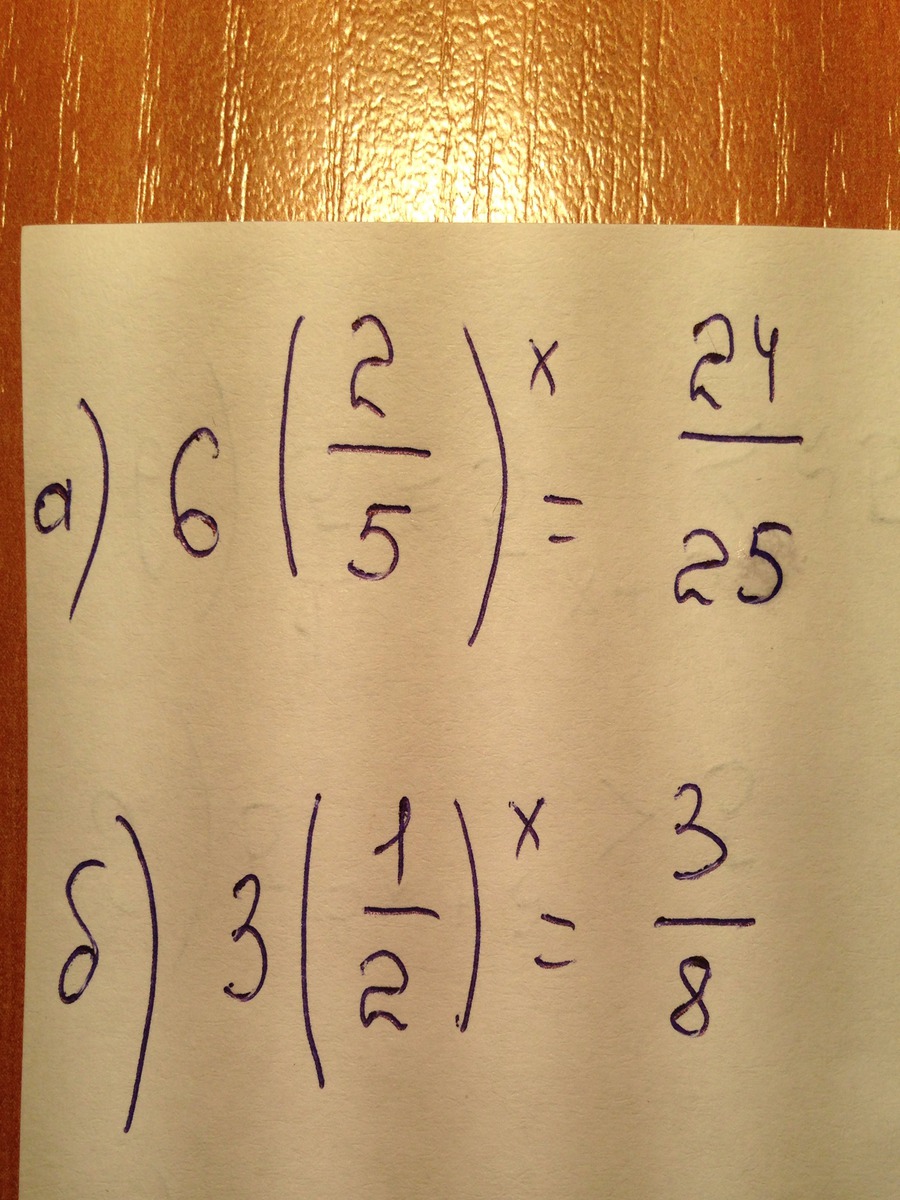 а) 6 (2/5)^x = 24/25
б) 3 (1/2)^x = 3/8